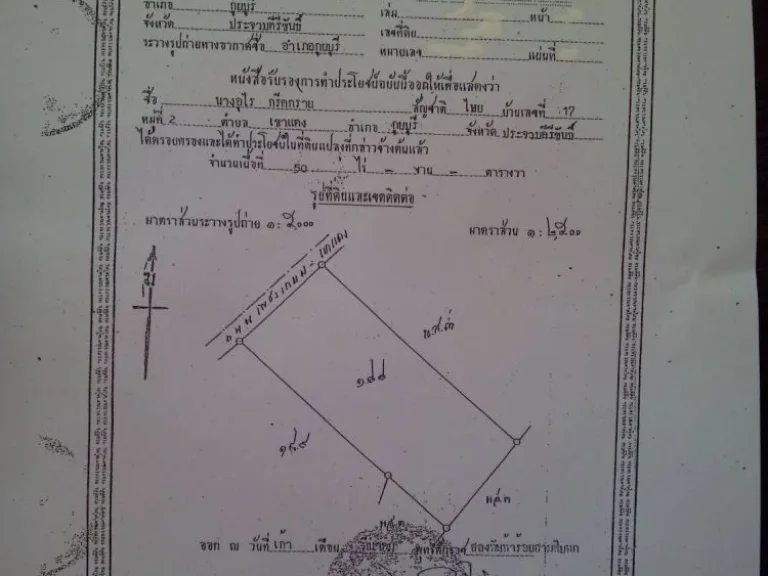 อำเภอ กุยบุรี เล่ม หน้า
จังหวัด ประจวบคีรีขันธ์ เลขที่ดิน
ระวางรูปถ่ายทางอากาศชื่อ อำเภอกุยบุรี หมายเลข แผ่นที่
หนังสือรับรองการทำประโยชน์ฉบับนี้ออกให้เพื่อแสดงว่า
ชื่อ นางอุไร สัญชาติ ไทย บ้านเลขที่ 17
หมู่ที่ 2 ตำบล เขาแดง อำเภอ กุยบุรี จังหวัด ประจวบคีรีขันธ์
ได้ครอบครองและได้ทำประโยชน์ในที่ดินแปลงที่กล่าวข้างต้นแล้ว
จำนวนเนื้อที่ 50 ไร่ – งาน – ตารางวา
รูปที่ดินและเขตติดต่อ
มาตราส่วนระวางรูปถ่าย ๑ : ๕,๐๐๐ มาตราส่วน ๑ : ๒,๕๐๐
น
ถนน เพชรเกษม - เขาแดง
น.ส.๓
๑๘๘
๑๘๙
น.ส.๓
น.ส.๓
ออก ณ วันที่ เก้า เดือน